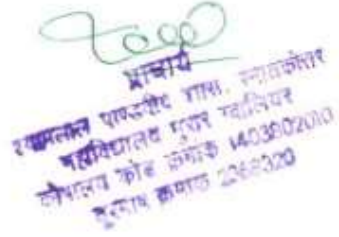 प्राचार्य
श्यामलाल पाण्डवीय शास. स्नातकोत्तर
महाविद्यालय मुरार ग्वालियर
कोषालय कोड क्रमांक 1403802010
दूरभाष क्रमांक 2368320